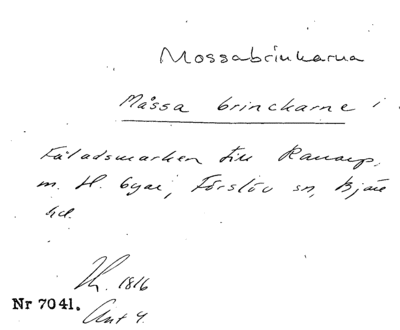 Mossabrinkarna
Måssa brinckarne i
Fäladsmarken till Ranarp
m. fl. byar, Förslöv sn, Bjäre
hd.
1816
Nr 7041.
Akt 4.